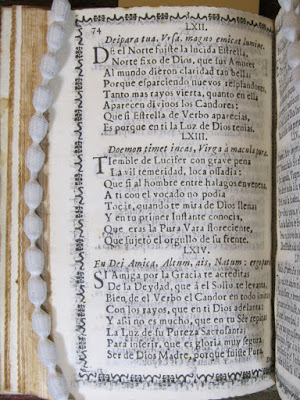 74
LXII.
Deipara tua, Ursa, magno emicat lumine.
Del Norte fuiste la lucida Estrella,
Norte fixo de Dios, que sus Amores
Al mundo dieron claridad tan bella:
Porque esparciendo nuevos resplandores,
Tanto mas rayos vierta, quanto en ella
Aparecen divinos los Candores:
Que si Estrella de Verbo aparecias,
Es porque en ti la Luz de Dios tenias.
LXIII.
Doemon timet incas, Virga à macula pura.
Tiemble de Lucifer con grave pena
La vil temeridad, loca ossadia:
Que si al hombre entre halagos envenena,
A ti con el vocado no podia
Tocir, quando te mira de Dios llena:
Y en tu primer Instante conocia,
Que eras la Pura Vara floreciente,
Que sujetò el orgullo de su frente.
LXIV.
En Dei Amica, Altum, ais, Natum:
Si Amiga por la Gracia te acreditas
De la Deydad, que à el Solio te levanta,
Bien de el Verbo el Candor en todo imitas
Con los rayos, que en ti Dios adelanta:
Y assi no es mucho, que en tu Ser repitas
La Luz de su Pureza Sacrosanta
Para inferir, que es gloria muy segura
Ser de Dios Madre, porque fuiste Pura.